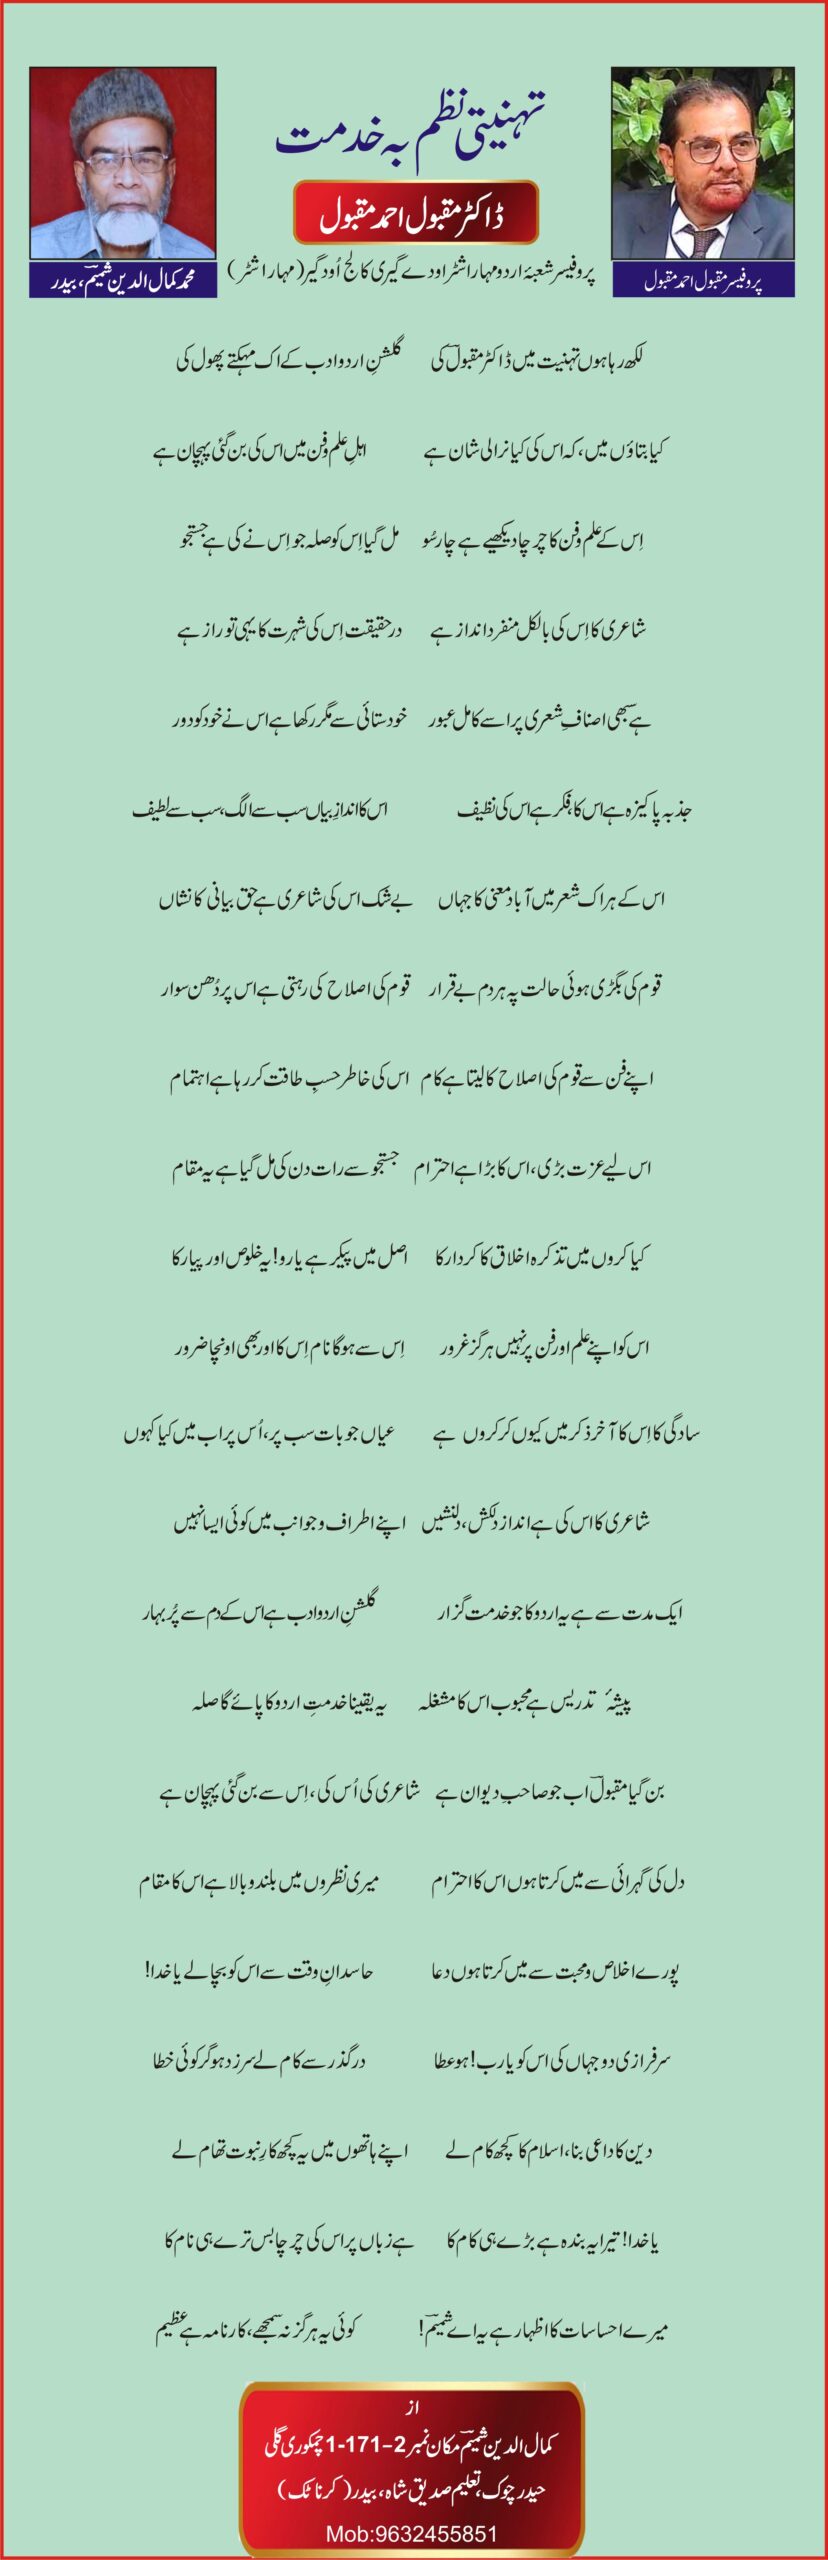 تہنیتی نظم بہ خدمت
ڈاکٹر مقبول احمد مقبول
پروفیسر شعبۂ اردو مہاراشٹرا ودے گیری کالج اُودگیر (مہاراشٹر)
پروفیسر مقبول احمد مقبول
محمد کمال الدین شمیمؔ، بیدر
لکھ رہا ہوں تہنیت میں ڈاکٹر مقبولؔ کی گلشنِ اردو ادب کے اک مہکتے پھول کی
کیا بتاؤں میں، کہ اس کی کیا نرالی شان ہے اہلِ علم و فن میں اس کی بن گئی پہچان ہے
اِس کے علم و فن کا چرچا دیکھیے ہے چار سُو مل گیا اِس کو صلہ جو اِس نے کی ہے جستجو
شاعری کا اِس کی بالکل منفرد انداز ہے درحقیقت اِس کی شہرت کا یہی تو راز ہے
ہے سبھی اصنافِ شعری پر اسے کامل عبور خودستائی سے مگر رکھا ہے اس نے خود کو دور
جذبہ پاکیزہ ہے اس کا، فکر ہے اس کی نظیف اس کا اندازِ بیاں سب سے الگ، سب سے لطیف
اس کے ہر اک شعر میں آباد معنی کا جہاں بے شک اس کی شاعری ہے حق بیانی کا نشاں
قوم کی بگڑی ہوئی حالت پہ ہر دم بے قرار قوم کی اصلاح کی رہتی ہے اس پر دُھن سوار
اپنے فن سے قوم کی اصلاح کا لیتا ہے کام اس کی خاطر حسبِ طاقت کر رہا ہے اہتمام
اس لیے عزت بڑی، اس کا بڑا ہے احترام جستجو سے رات دن کی مل گیا ہے یہ مقام
کیا کروں میں تذکرہ اخلاق کا کردار کا اصل میں پیکر ہے یارو! یہ خلوص اور پیار کا
اس کو اپنے علم اور فن پر نہیں ہرگز غرور اِس سے ہوگا نام اِس کا اور بھی اونچا ضرور
سادگی کا اِس کا آخر ذکر میں کیوں کر کروں ہے عیاں جو بات سب پر، اُس پر اب میں کیا کہوں
شاعری کا اس کی ہے انداز دلکش، دلنشیں اپنے اطراف و جوانب میں کوئی ایسا نہیں
ایک مدت سے ہے یہ اردو کا جو خدمت گزار گلشنِ اردو ادب ہے اس کے دم سے پُر بہار
پیشۂ تدریس ہے محبوب اس کا مشغلہ یہ یقینا خدمتِ اردو کا پائے گا صلہ
بن گیا مقبولؔ اب جو صاحبِ دیوان ہے شاعری کی اُس کی، اِس سے بن گئی پہچان ہے
دل کی گہرائی سے میں کرتا ہوں اس کا احترام میری نظروں میں بلند و بالا ہے اس کا مقام
پورے اخلاص و محبت سے میں کرتا ہوں دعا حاسدانِ وقت سے اس کو بچا لے یا خدا!
سرفرازی دو جہاں کی اس کو یارب! ہو عطا درگذر سے کام لے سرزد ہو گر کوئی خطا
دین کا داعی بنا، اسلام کا کچھ کام لے اپنے ہاتھوں میں یہ کچھ کارِ نبوت تھام لے
یا خدا! تیرا یہ بندہ ہے بڑے ہی کام کا ہے زباں پر اس کی چرچا بس ترے ہی نام کا
میرے احساسات کا اظہار ہے یہ اے شمیمؔ! کوئی یہ ہرگز نہ سمجھے، کارنامہ ہے عظیم
از
کمال الدین شمیمؔ مکان نمبر 2-171-1 چمکوری گلی
حیدر چوک، تعلیم صدیق شاہ، بیدر (کرناٹک)
Mob:9632455851